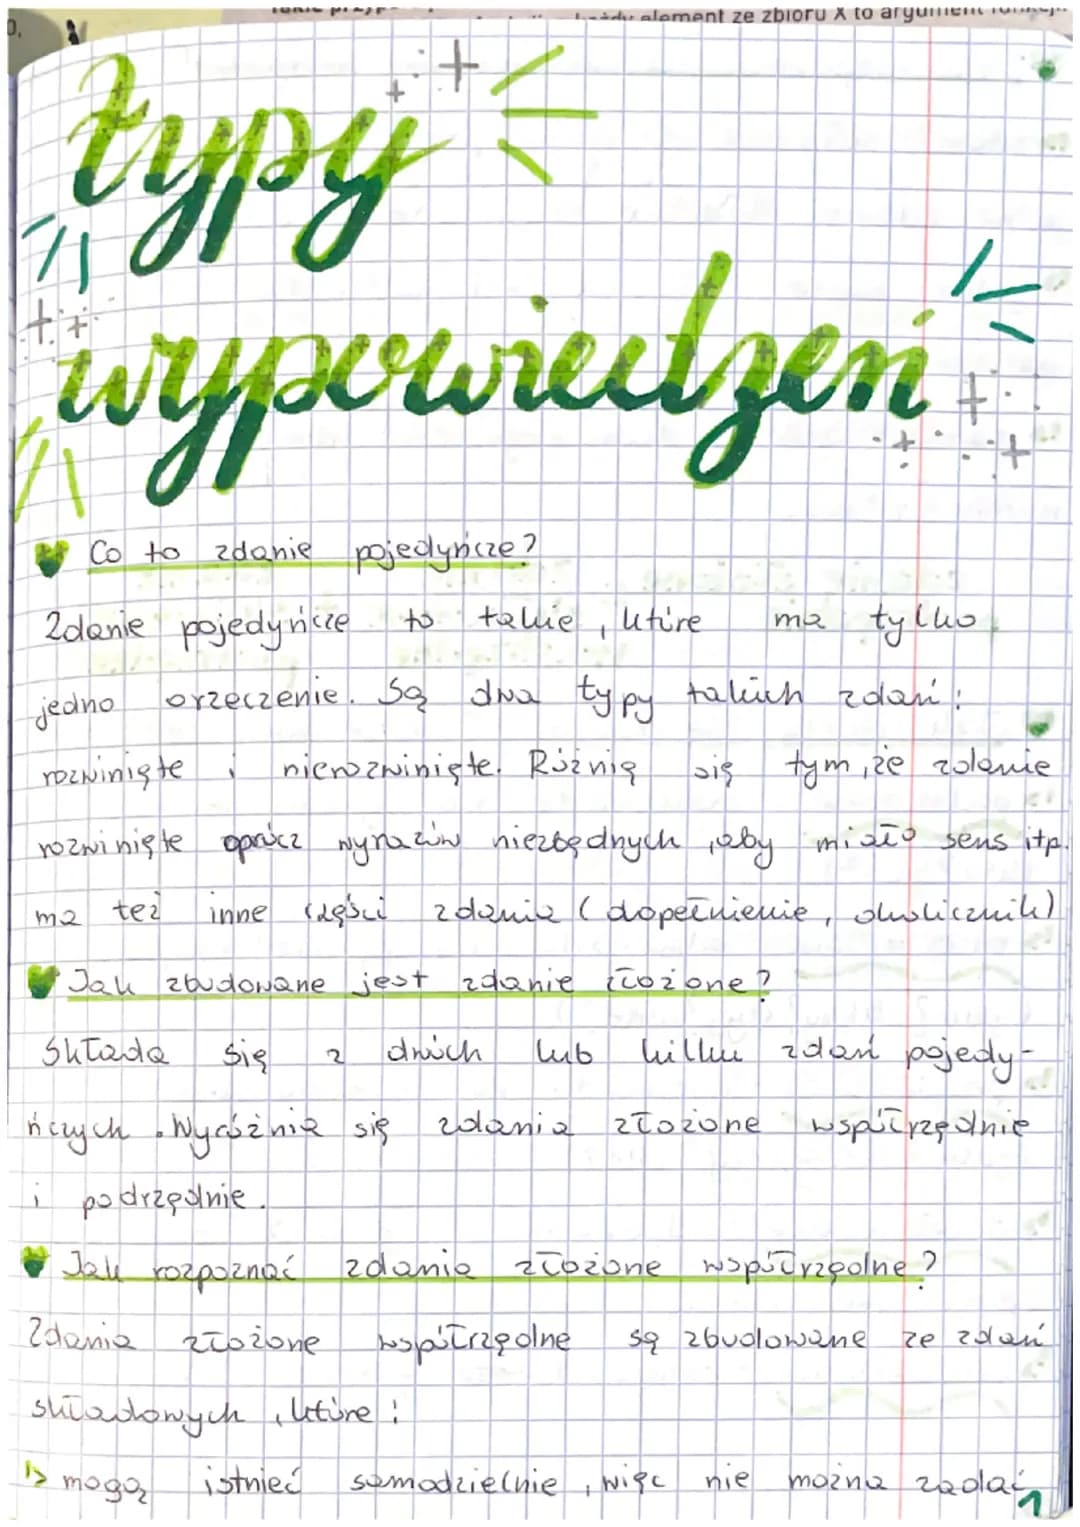 każdy element ze zbioru X to argument
typy
wypowiedzeń
Co to zdanie pojedyńcze?
Zdanie pojedyńcze to takie, które ma tylko
jedno orzeczenie. Są dwa typy takich zdań:
rozwinięte i nierozwinięte. Różnią się tym, że zdanie
rozwinięte oprócz wyrazów niezbędnych, aby miało sens itp.
ma też inne części zdania (dopełnienie, okolicznik)
Jak zbudowane jest zdanie złożone?
Składa się z dwóch lub kilku zdań pojedy-
ńczych. Wyróżnia się zdania złożone współrzędnie
i podrzędnie.
Jak rozpoznać zdania złożone współrzędne?
Zdania złożone współrzędne są zbudowane ze zdań
składowych, które:
mogą istnieć samodzielnie, więc nie można zadać
1